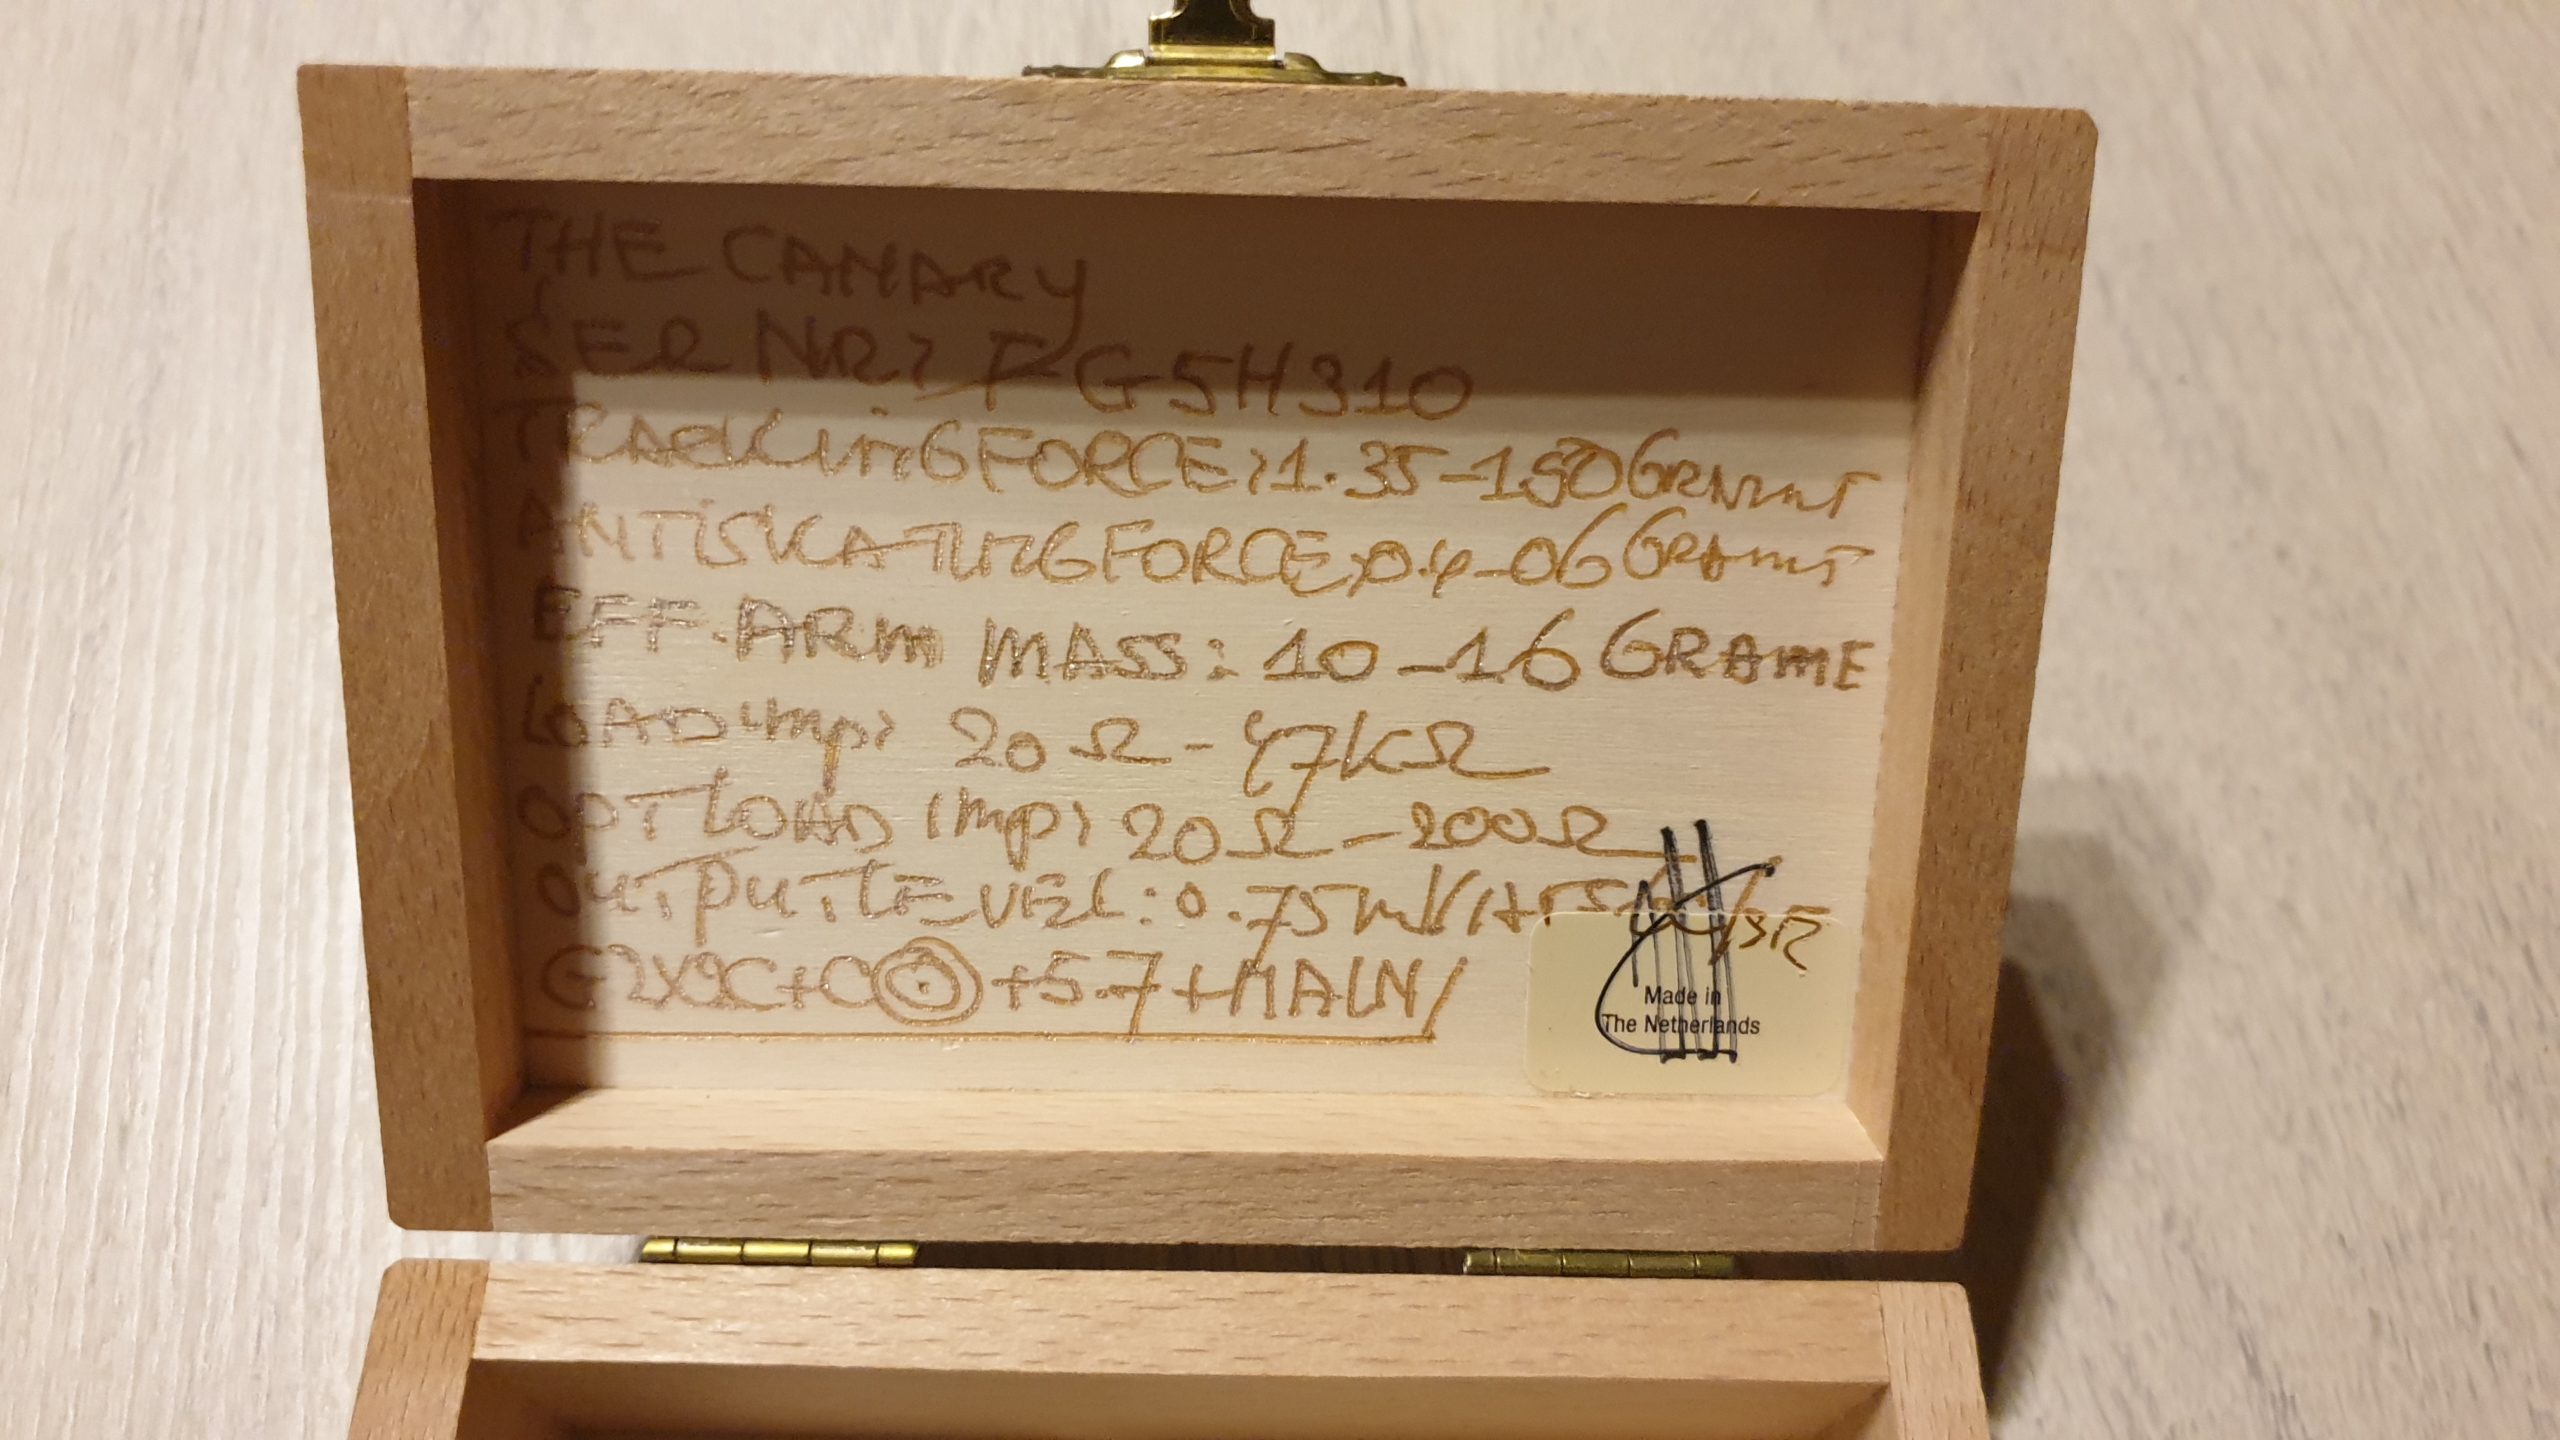 THE CANARY
SER NR: FG5H310
TRACKING FORCE: 1.35-150 GRAMS
ANTISKATING FORCE: 0.4-06 GRAMS
EFF. ARM MASS: 10-16 GRAME
LOAD imp: 20Ω-47KΩ
OPT LOAD imp: 20Ω-200Ω
OUTPUT LEVEL: 0.75mV
+5.7+MAIN/
Made in
The Netherlands